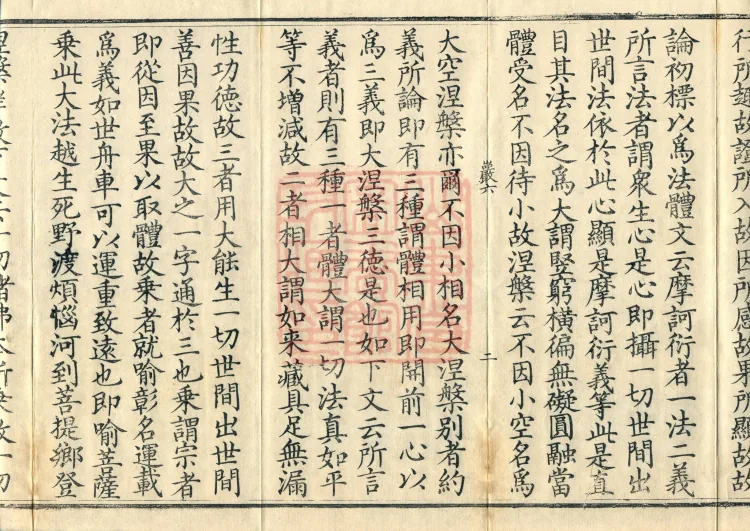 行所趣故證所入故因所感故果所顯故故
論初標以為法體文云摩訶衍者一法二義
所言法者謂眾生心是心即攝一切世間出
世間法依於此心顯是摩訶衍義等此是直
目其法名之為大謂竪窮橫徧無礙圓融當
體受名不因待小故涅槃云不因小空名為
巖六
二
大空涅槃亦爾不因小相名大涅槃別者約
義所論即有三種謂體相用即開前一心以
為三義即大涅槃三德是也如下文云所言
義者則有三種一者體大謂一切法真如平
等不增減故二者相大謂如來藏具足無漏
性功德故三者用大能生一切世間出世間
善因果故故大之一字通於三也乘謂宗者
即從因至果以取體故乘者就喻彰名運載
為義如世舟車可以運重致遠也即喻菩薩
乘此大法越生死野渡煩惱河到菩提鄉登